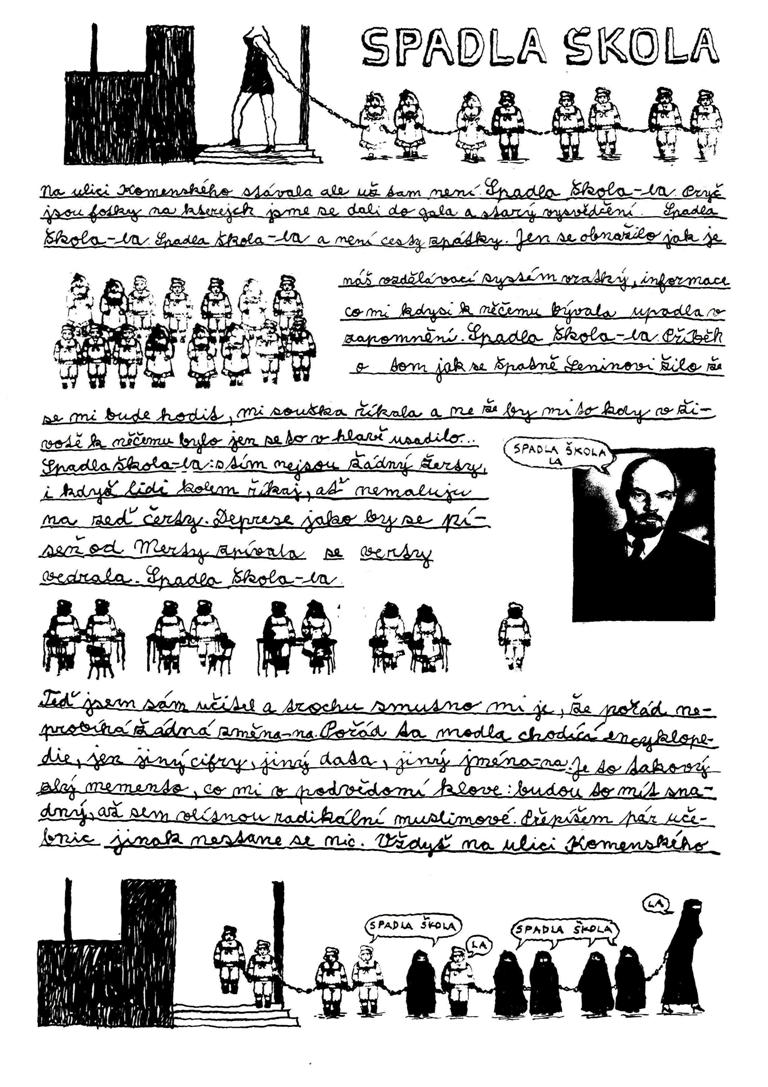 SPADLA ŠKOLA
Na ulici Komenského stávala ale už tam není. Spadla škola-la. Pryč
jsou fotky na kterejch jsme se dali do gala a starý vysvědčení. Spadla
škola-la. Spadla škola-la a není cesty zpátky. Jen se obnažilo jak je
náš vzdělávací systém vratký, informace
co mi kdysi k něčemu bývala upadla v
zapomnění. Spadla škola-la. Příběh
o tom jak se špatně Leninovi žilo že
se mi bude hodit, mi soužka říkala a ne že by mi to kdy v ži-
votě k něčemu bylo jen se to v hlavě usadilo..
Spadla škola-la: s tím nejsou žádný žerty,
i když lidi kolem říkaj, ať nemaluju
na zeď čerty. Deprese jako by se pí-
seň od Merty zpívala se verty
vedrala. Spadla škola-la.
SPADLA ŠKOLA
LA
Teď jsem sám učitel a trochu smutno mi je, že pořád ne-
probíhá žádná změna-na. Pořád ta modla chodící encyklope-
die, jen jiný cifry, jiný data, jiný jména-na. Je to takový
zlý memento, co mi v podvědomí klove: budou to mít sna-
dný, až sem vlísnou radikální muslimové. Přepíšem pár uče-
bnic jinak nestane se nic. Vždyť na ulici Komenského
SPADLA ŠKOLA
LA
SPADLA ŠKOLA
LA